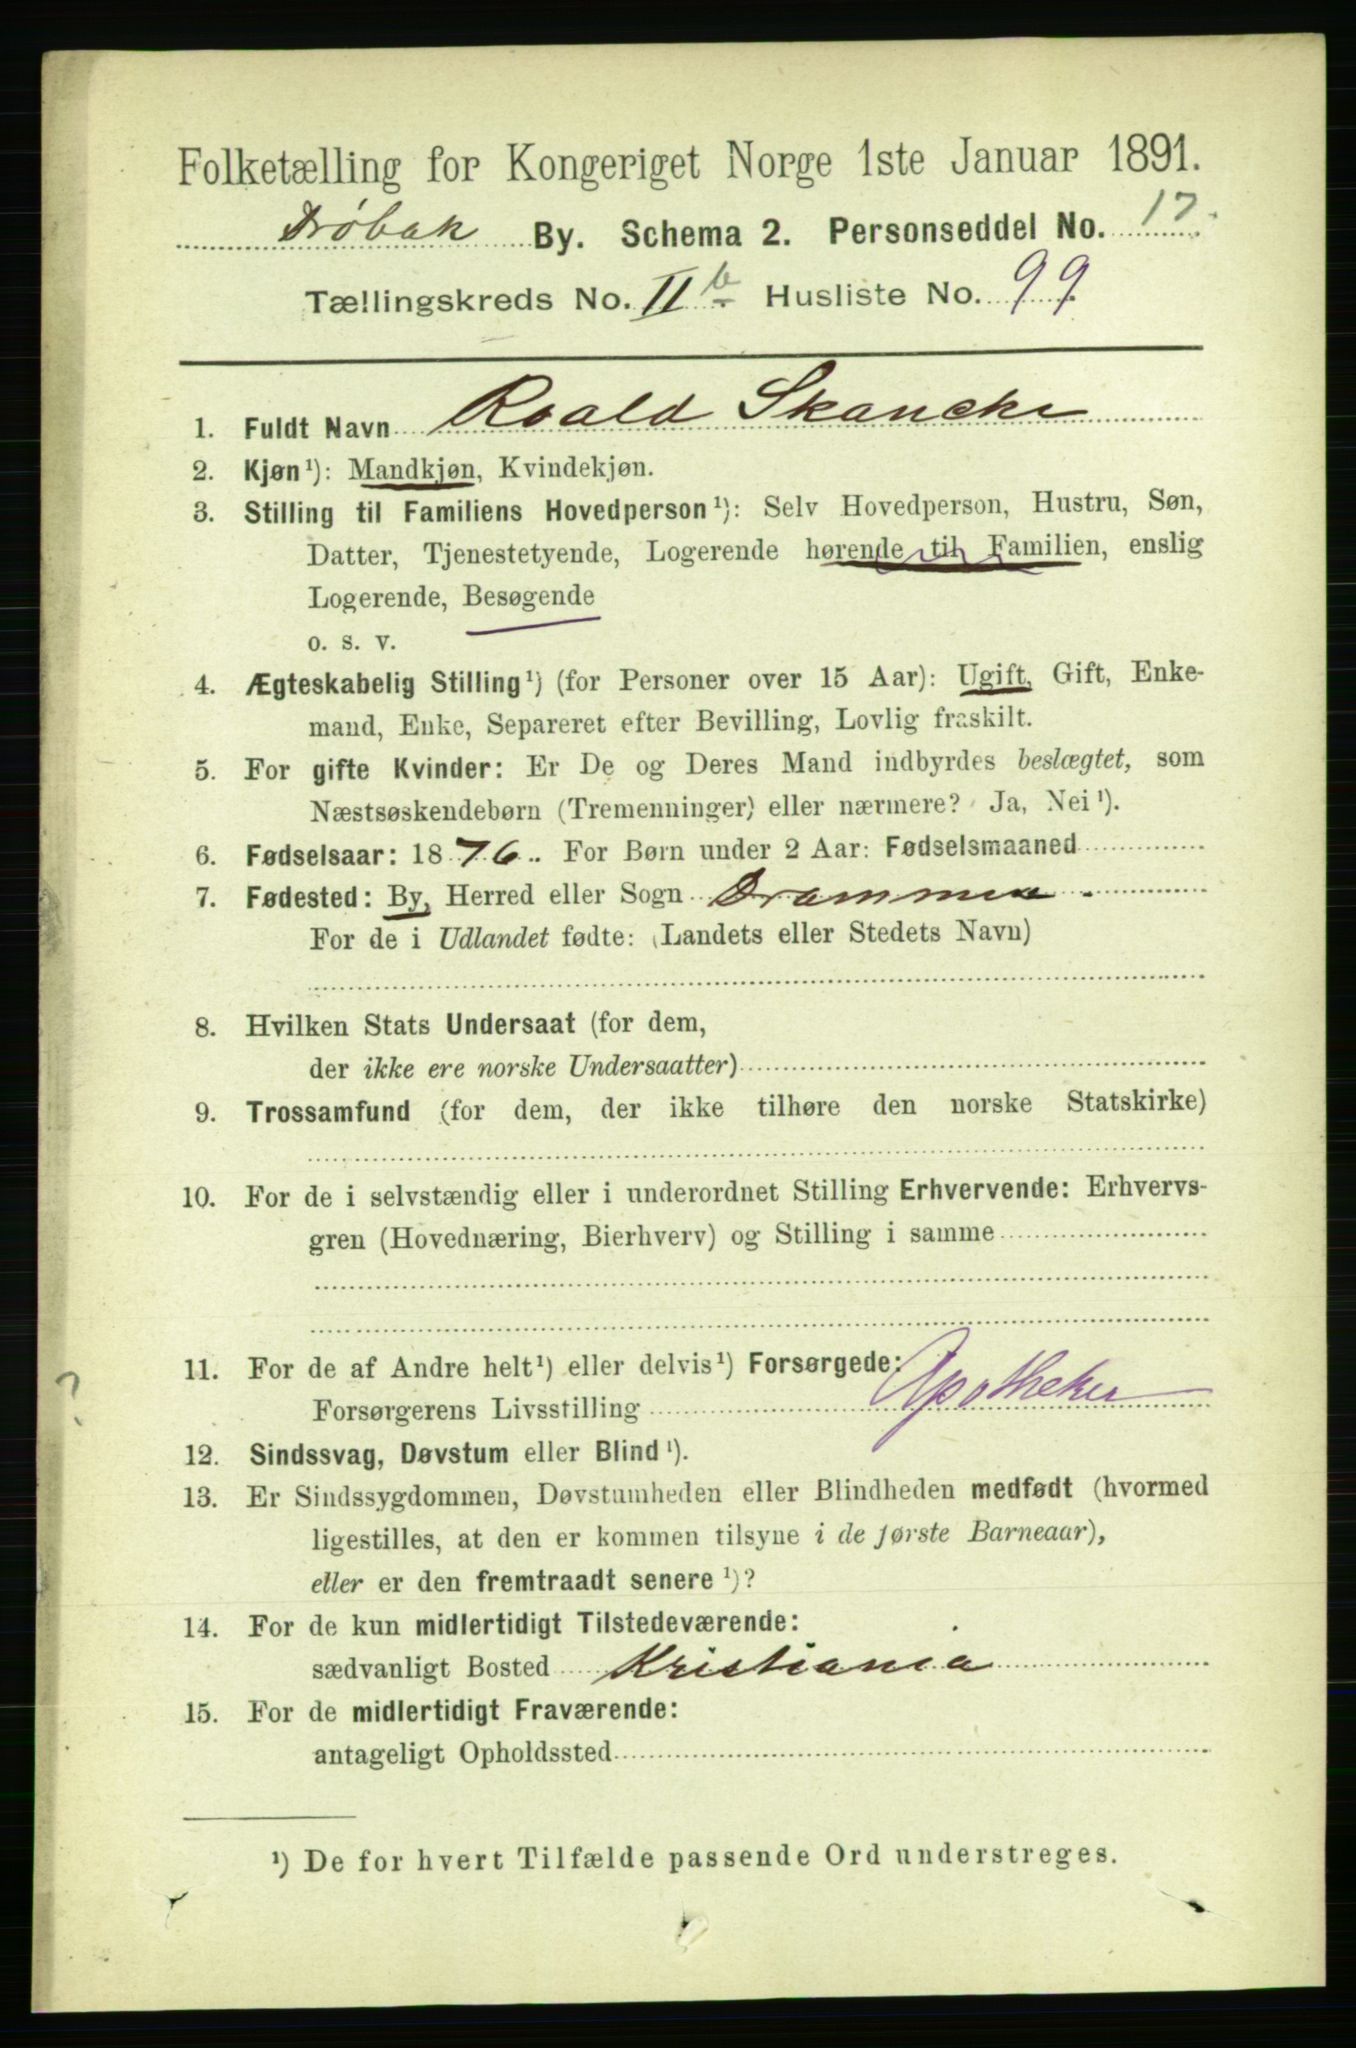 Folketælling for Kongeriget Norge 1ste Januar 1891.
Drøbak By. Schema 2. Personseddel No. 17.
Tællingskreds No. II b Husliste No. 99.
1. Fuldt Navn Roald Skancke
2. Kjøn¹): Mandkjøn, Kvindekjøn.
3. Stilling til Familiens Hovedperson¹): Selv Hovedperson, Hustru, Søn,
Datter, Tjenestetyende, Logerende hørende til Familien, enslig
Logerende, Besøgende
o. s. v.
4. Ægteskabelig Stilling¹) (for Personer over 15 Aar): Ugift, Gift, Enke-
mand, Enke, Separeret efter Bevilling, Lovlig fraskilt.
5. For gifte Kvinder: Er De og Deres Mand indbyrdes beslægtet, som
Næstsøskendebørn (Tremenninger) eller nærmere? Ja, Nei¹).
6. Fødselsaar: 1876.. For Børn under 2 Aar: Fødselsmaaned
7. Fødested: By, Herred eller Sogn Drammen
For de i Udlandet fødte: (Landets eller Stedets Navn)
8. Hvilken Stats Undersaat (for dem,
der ikke ere norske Undersaatter)
9. Trossamfund (for dem, der ikke tilhøre den norske Statskirke)
10. For de i selvstændig eller i underordnet Stilling Erhvervende: Erhvervs-
gren (Hovednæring, Bierhverv) og Stilling i samme
11. For de af Andre helt¹) eller delvis¹) Forsørgede:
Forsørgerens Livsstilling Apotheker
?
12. Sindssvag, Døvstum eller Blind¹).
13. Er Sindssygdommen, Døvstumheden eller Blindheden medfødt (hvormed
ligestilles, at den er kommen tilsyne i de første Barneaar),
eller er den fremtraadt senere¹)?
14. For de kun midlertidigt Tilstedeværende:
sædvanligt Bosted Kristiania
15. For de midlertidigt Fraværende:
antageligt Opholdssted
¹) De for hvert Tilfælde passende Ord understreges.